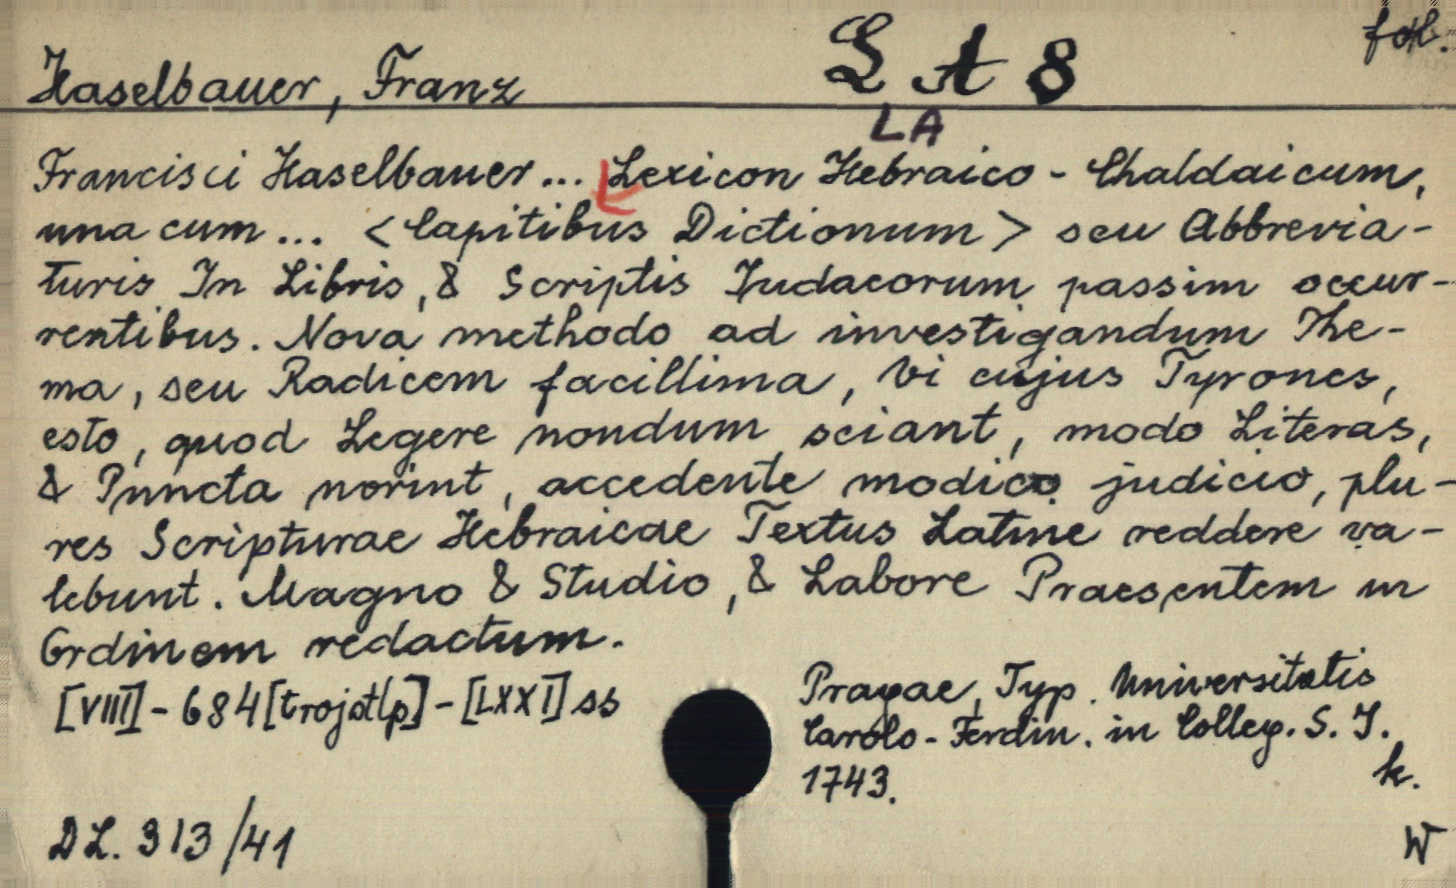 fol.
Haselbauer, Franz L A 8
LA
Francisci Haselbauer... Lexicon Hebraico - Chaldaicum,
una cum ... <Capitibus Dictionum> seu Abbrevia-
turis In Libris, & Scriptis Judaeorum passim occur-
rentibus. Nova methodo ad investigandum The-
ma, seu Radicem facillima, Vi cujus Tyrones,
esto, quod Legere nondum sciant, modo Literas,
& Puncta norint, accedente modico judicio, plu-
res Scripturae Hebraicae Textus Latine reddere va-
lebunt. Magno & Studio, & Labore Praesentem in
Ordinem redactum.
[VIII] - 684 [trojstlp] - [LXXI] ss
Pragae, Typ. Universitatis
Carolo-Ferdin. in Colleg. S. J.
1743.
k.
DL. 313/41
W